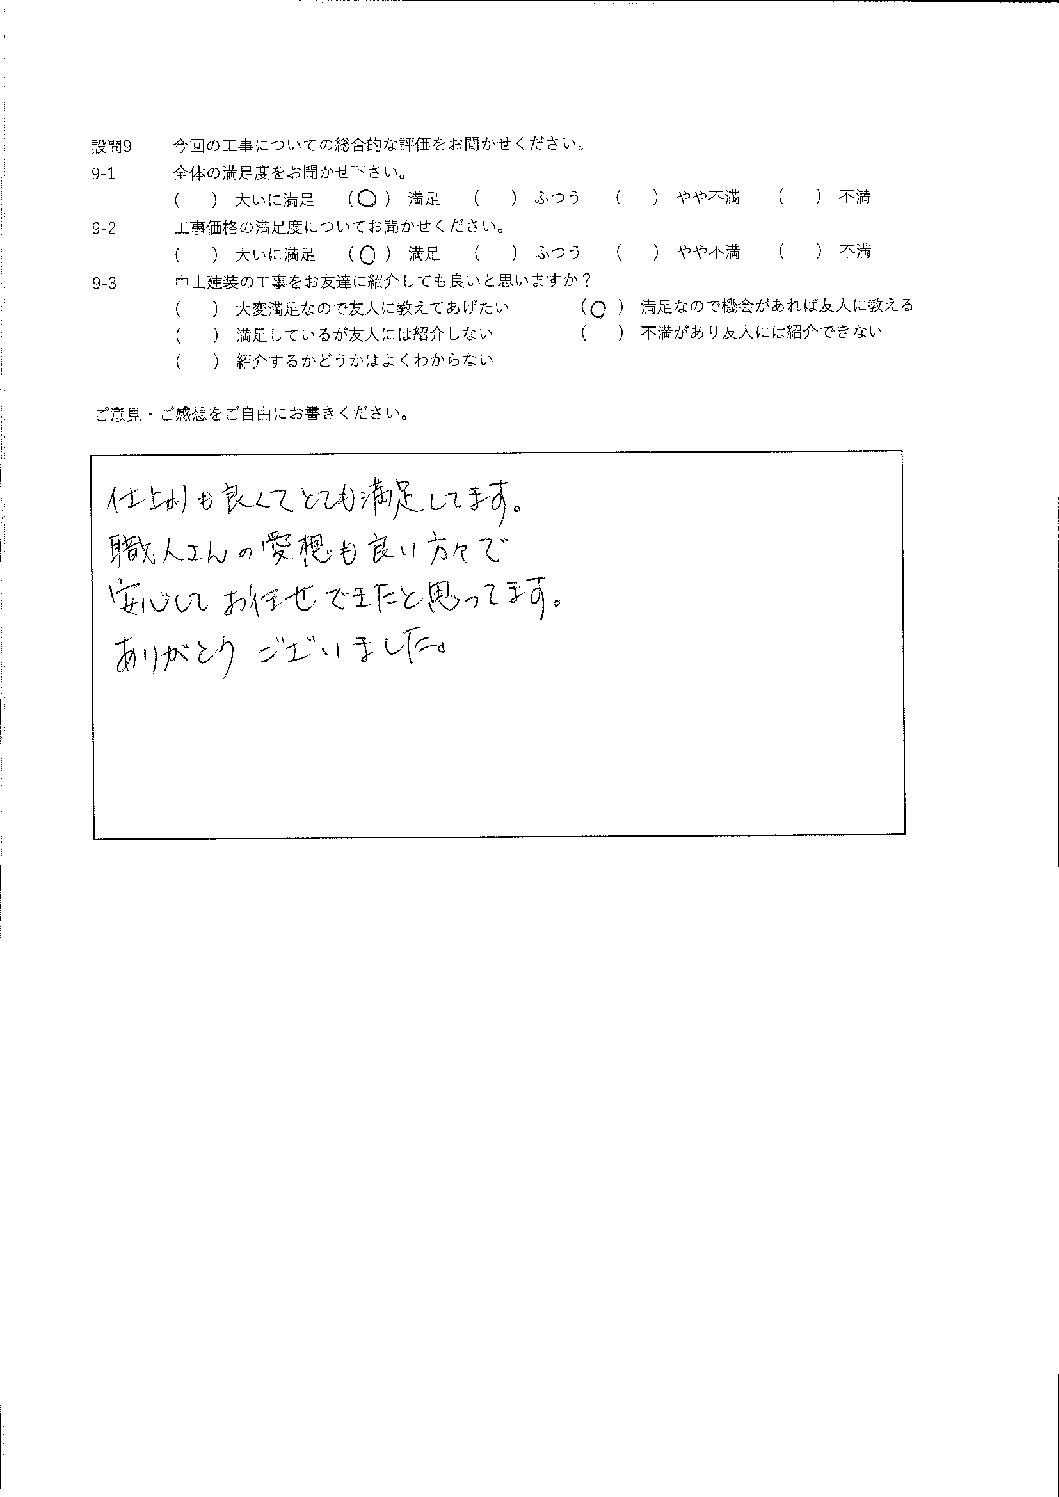 設問9 今回の工事についての総合的な評価をお聞かせください。
9-1 全体の満足度をお聞かせ下さい。
( ) 大いに満足 (○) 満足 ( ) ふつう ( ) やや不満 ( ) 不満
9-2 工事価格の満足度についてお聞かせください。
( ) 大いに満足 (○) 満足 ( ) ふつう ( ) やや不満 ( ) 不満
9-3 中上建装の工事をお友達に紹介しても良いと思いますか?
( ) 大変満足なので友人に教えてあげたい (○) 満足なので機会があれば友人に教える
( ) 満足しているが友人には紹介しない ( ) 不満があり友人には紹介できない
( ) 紹介するかどうかはよくわからない
ご意見・ご感想をご自由にお書きください。
仕上がりも良くてとても満足してます。
職人さんの愛想も良い方々で
安心してお任せできたと思ってます。
ありがとうございました。